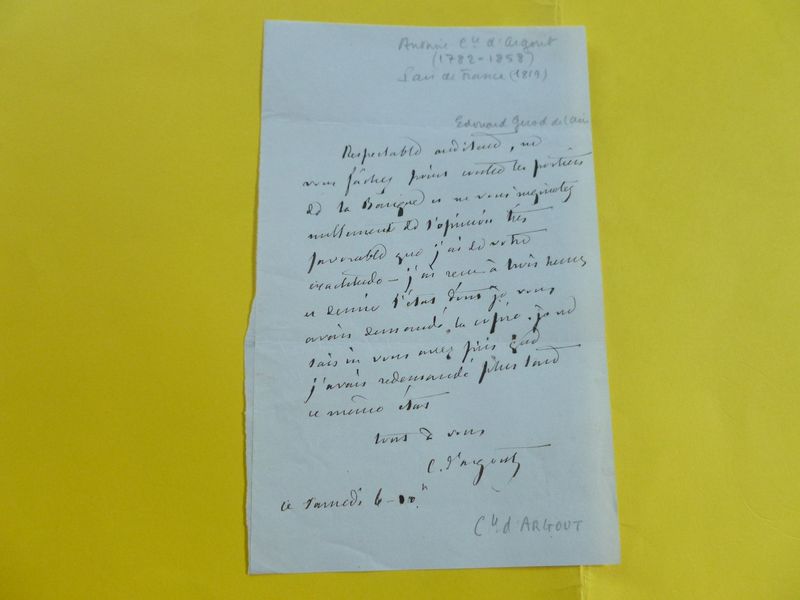 Antoine Cte d'Argout
(1782-1858)
Pair de France (1819)
Edouard Girod de l'Ain
Respectable auditeur, ne
vous fâchez point contre les portiers
de la Banque et ne vous inquiétez
nullement de l'opinion très
favorable que j'ai de votre
exactitude - j'ai reçu à trois heures
et demie l'état dont je vous
avais demandé la copie. je ne
sais où vous avez pris que
j'avais redemandé plus tard
ce même état
tout à vous
C. d'argout
ce samedi 6
Cte d'ARGOUT